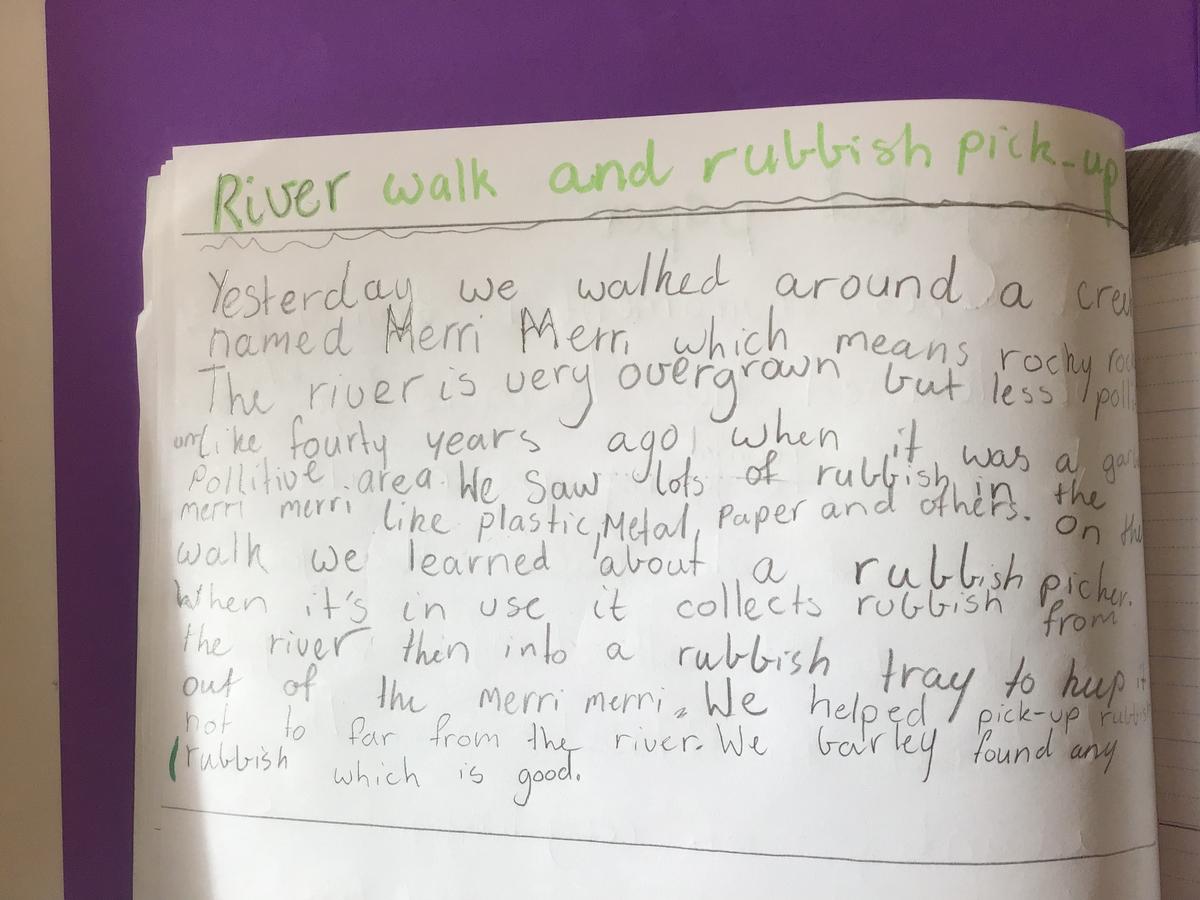 River walk and rubbish pick-up
Yesterday we walked around a
named Merri Merri which means rocky
The river is very overgrown but less
unlike fourty years ago, when it was a
Pollitive area. We Saw lots of rubbish in the
merri merri like plastic, Metal, Paper and others. On the
walk we learned about a rubbish picker.
When it's in use it collects rubbish from
the river then into a rubbish tray to kup it
out of the merri merri. We helped pick-up rubbish
not to far from the river. We barley found any
rubbish which is good.